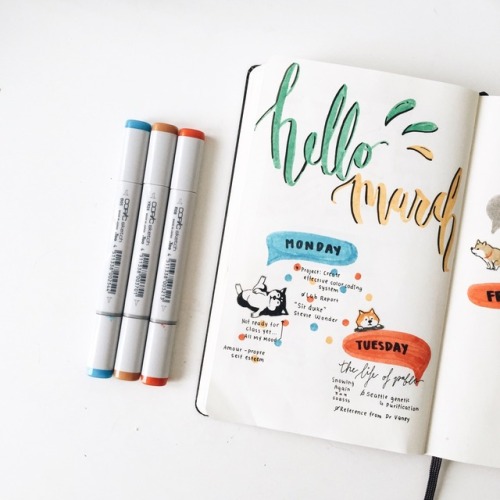 hello
march
MONDAY
Project: Create
effective color coding
system
Lab Report
"Sir duke"
Stevie Wonder
Not ready for
class yet...
All my mood
Amour-propre
self esteem
TUESDAY
the life of pablo
Snowing
Again
coasts
Seattle genetic
& purification
Reference from Dr Vaney
F
COPIC sketch
COPIC sketch
COPIC sketch